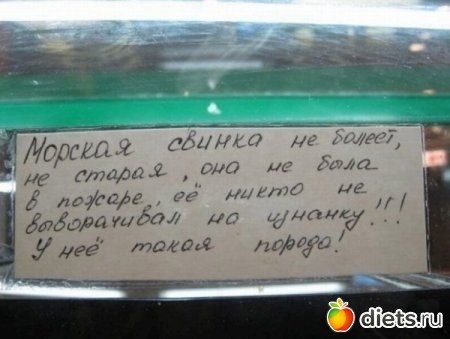 Морская свинка не болеет,
не старая, она не была
в пожаре, её никто не
выворачивал на изнанку!!!
У неё такая порода!
diets.ru